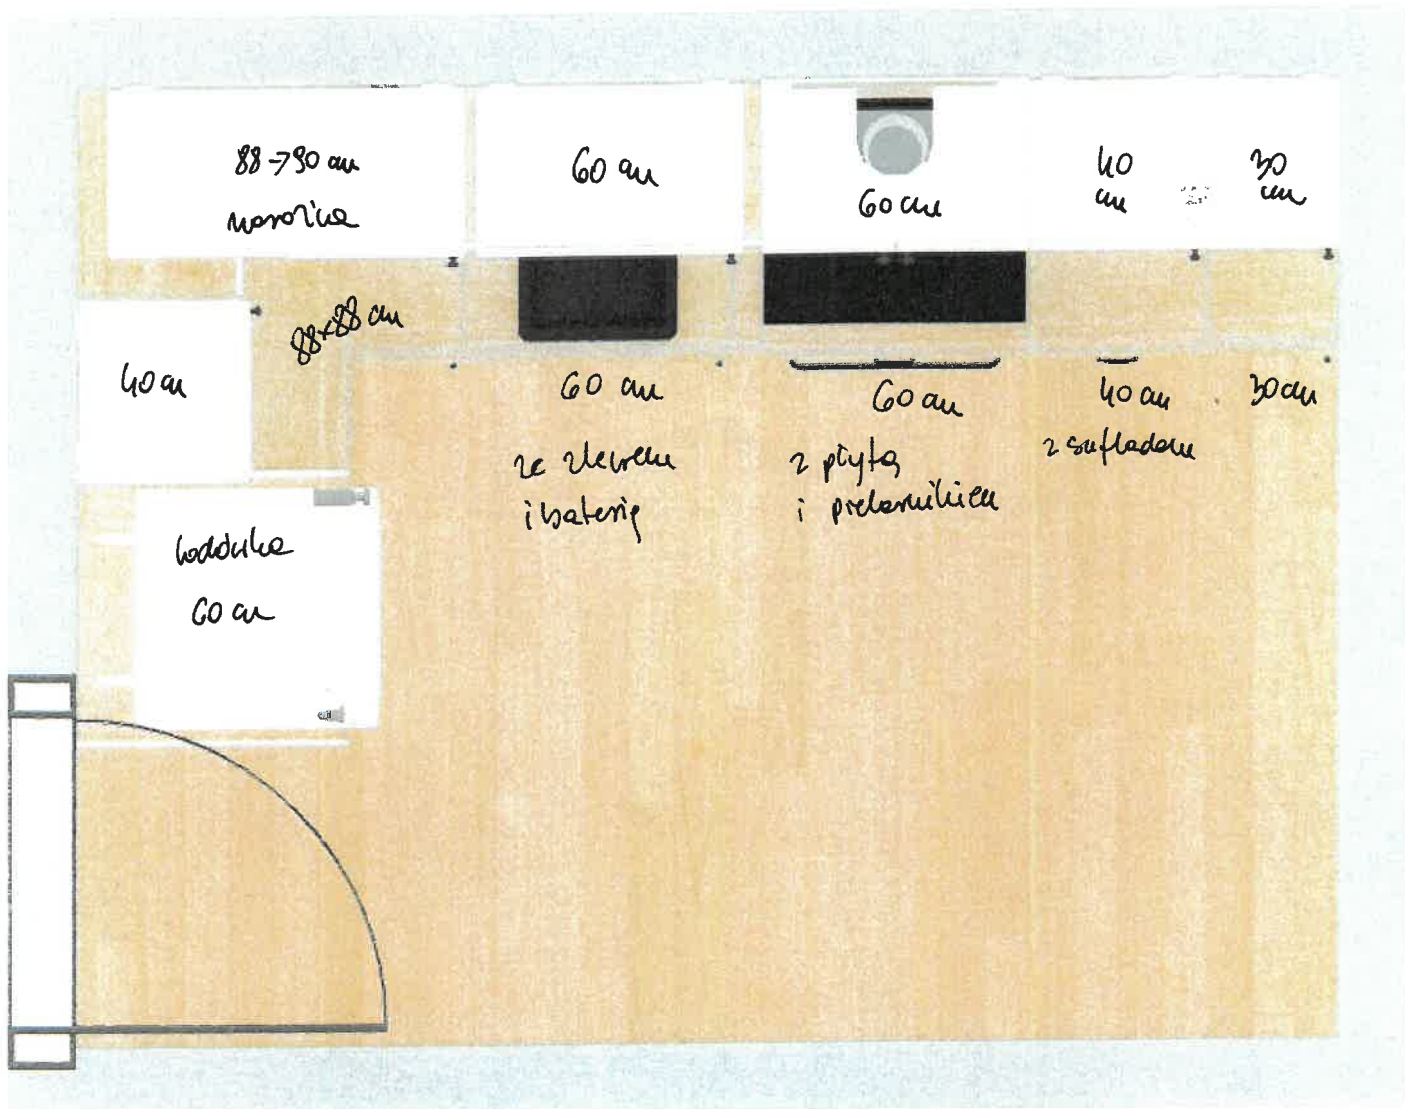 88->90 cm
narożna
60 cm
60 cm
40
cm
30
cm
88x88 cm
40 cm
60 cm
ze zlewem
i baterią
60 cm
z płytą
i piekarnikiem
40 cm
z szufladami
30 cm
lodówka
60 cm